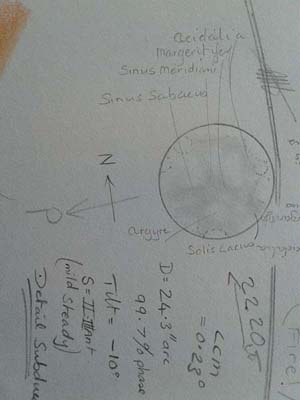 acidalia
margeritifer
Sinus Meridiani
Sinus Sabaeus
N
P
argyre
Solis Lacus
22.20
LCM
= 0.23°
D = 24.3" arc
99.7% phase
Tilt = -10°
S = II-III ant
(mild steady)
Detail Subdued
(Fire!